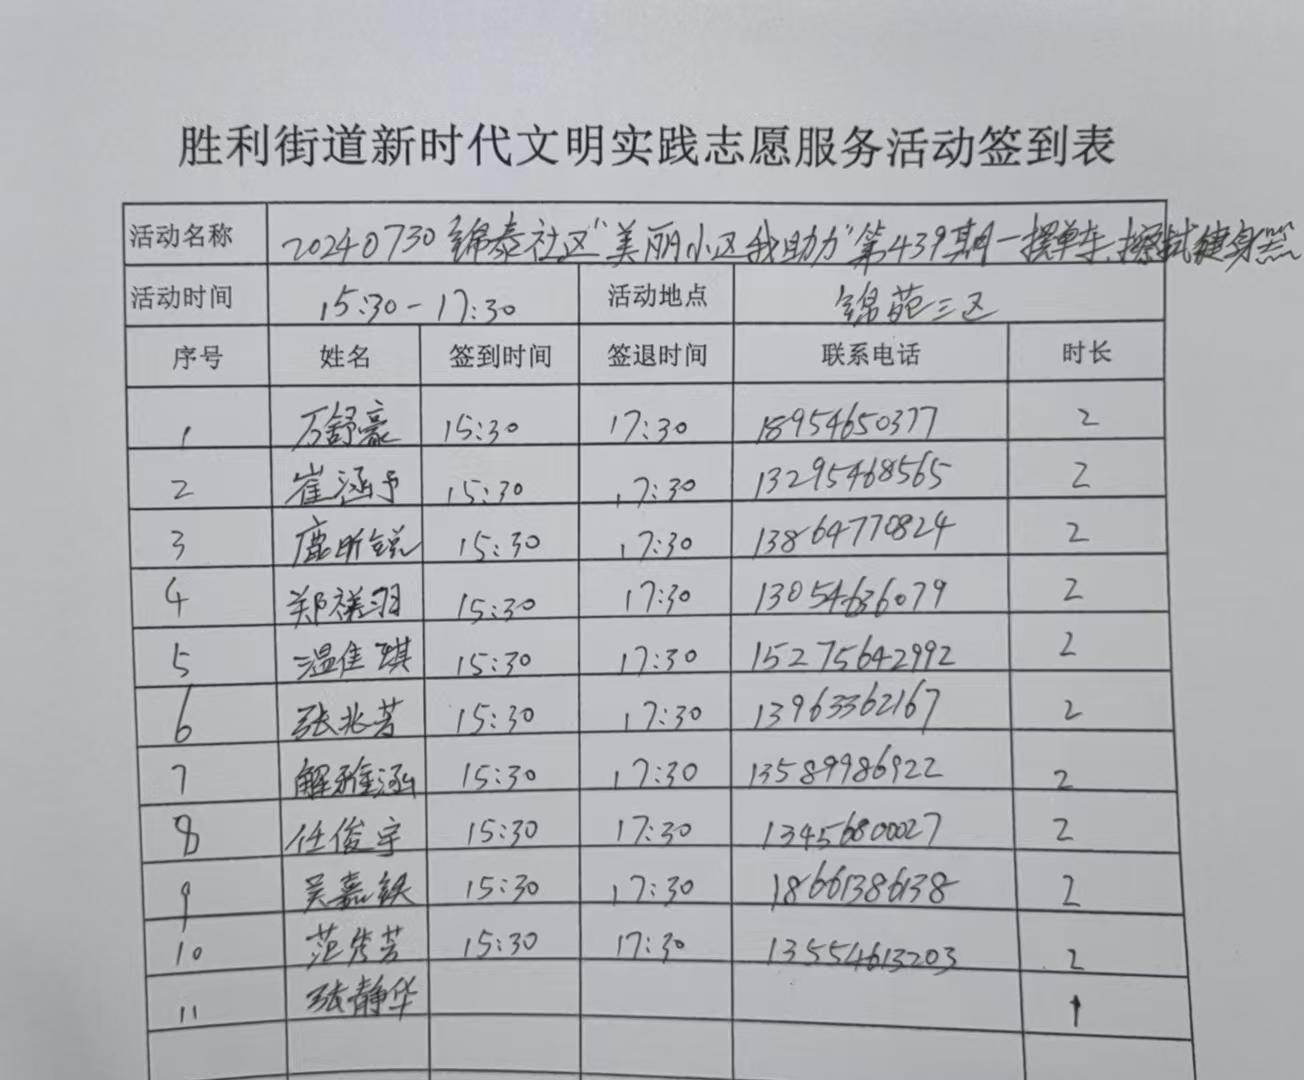 胜利街道新时代文明实践志愿服务活动签到表
活动名称 20240730锦泰社区"美丽小区我助力"第439期—摆单车、擦拭健身器
活动时间 15:30-17:30 活动地点 锦苑三区
序号 姓名 签到时间 签退时间 联系电话 时长
1 万舒豪 15:30 17:30 18954650377 2
2 崔涵予 15:30 17:30 13295468565 2
3 鹿昕锐 15:30 17:30 13864770824 2
4 郑祺羽 15:30 17:30 13054636079 2
5 温佳琪 15:30 17:30 15275642992 2
6 张兆芳 15:30 17:30 13963362167 2
7 解雅涵 15:30 17:30 13589986922 2
8 任俊宇 15:30 17:30 13456800027 2
9 吴嘉轶 15:30 17:30 18661386138 2
10 范秀芳 15:30 17:30 13554613203 2
11 张静华 1